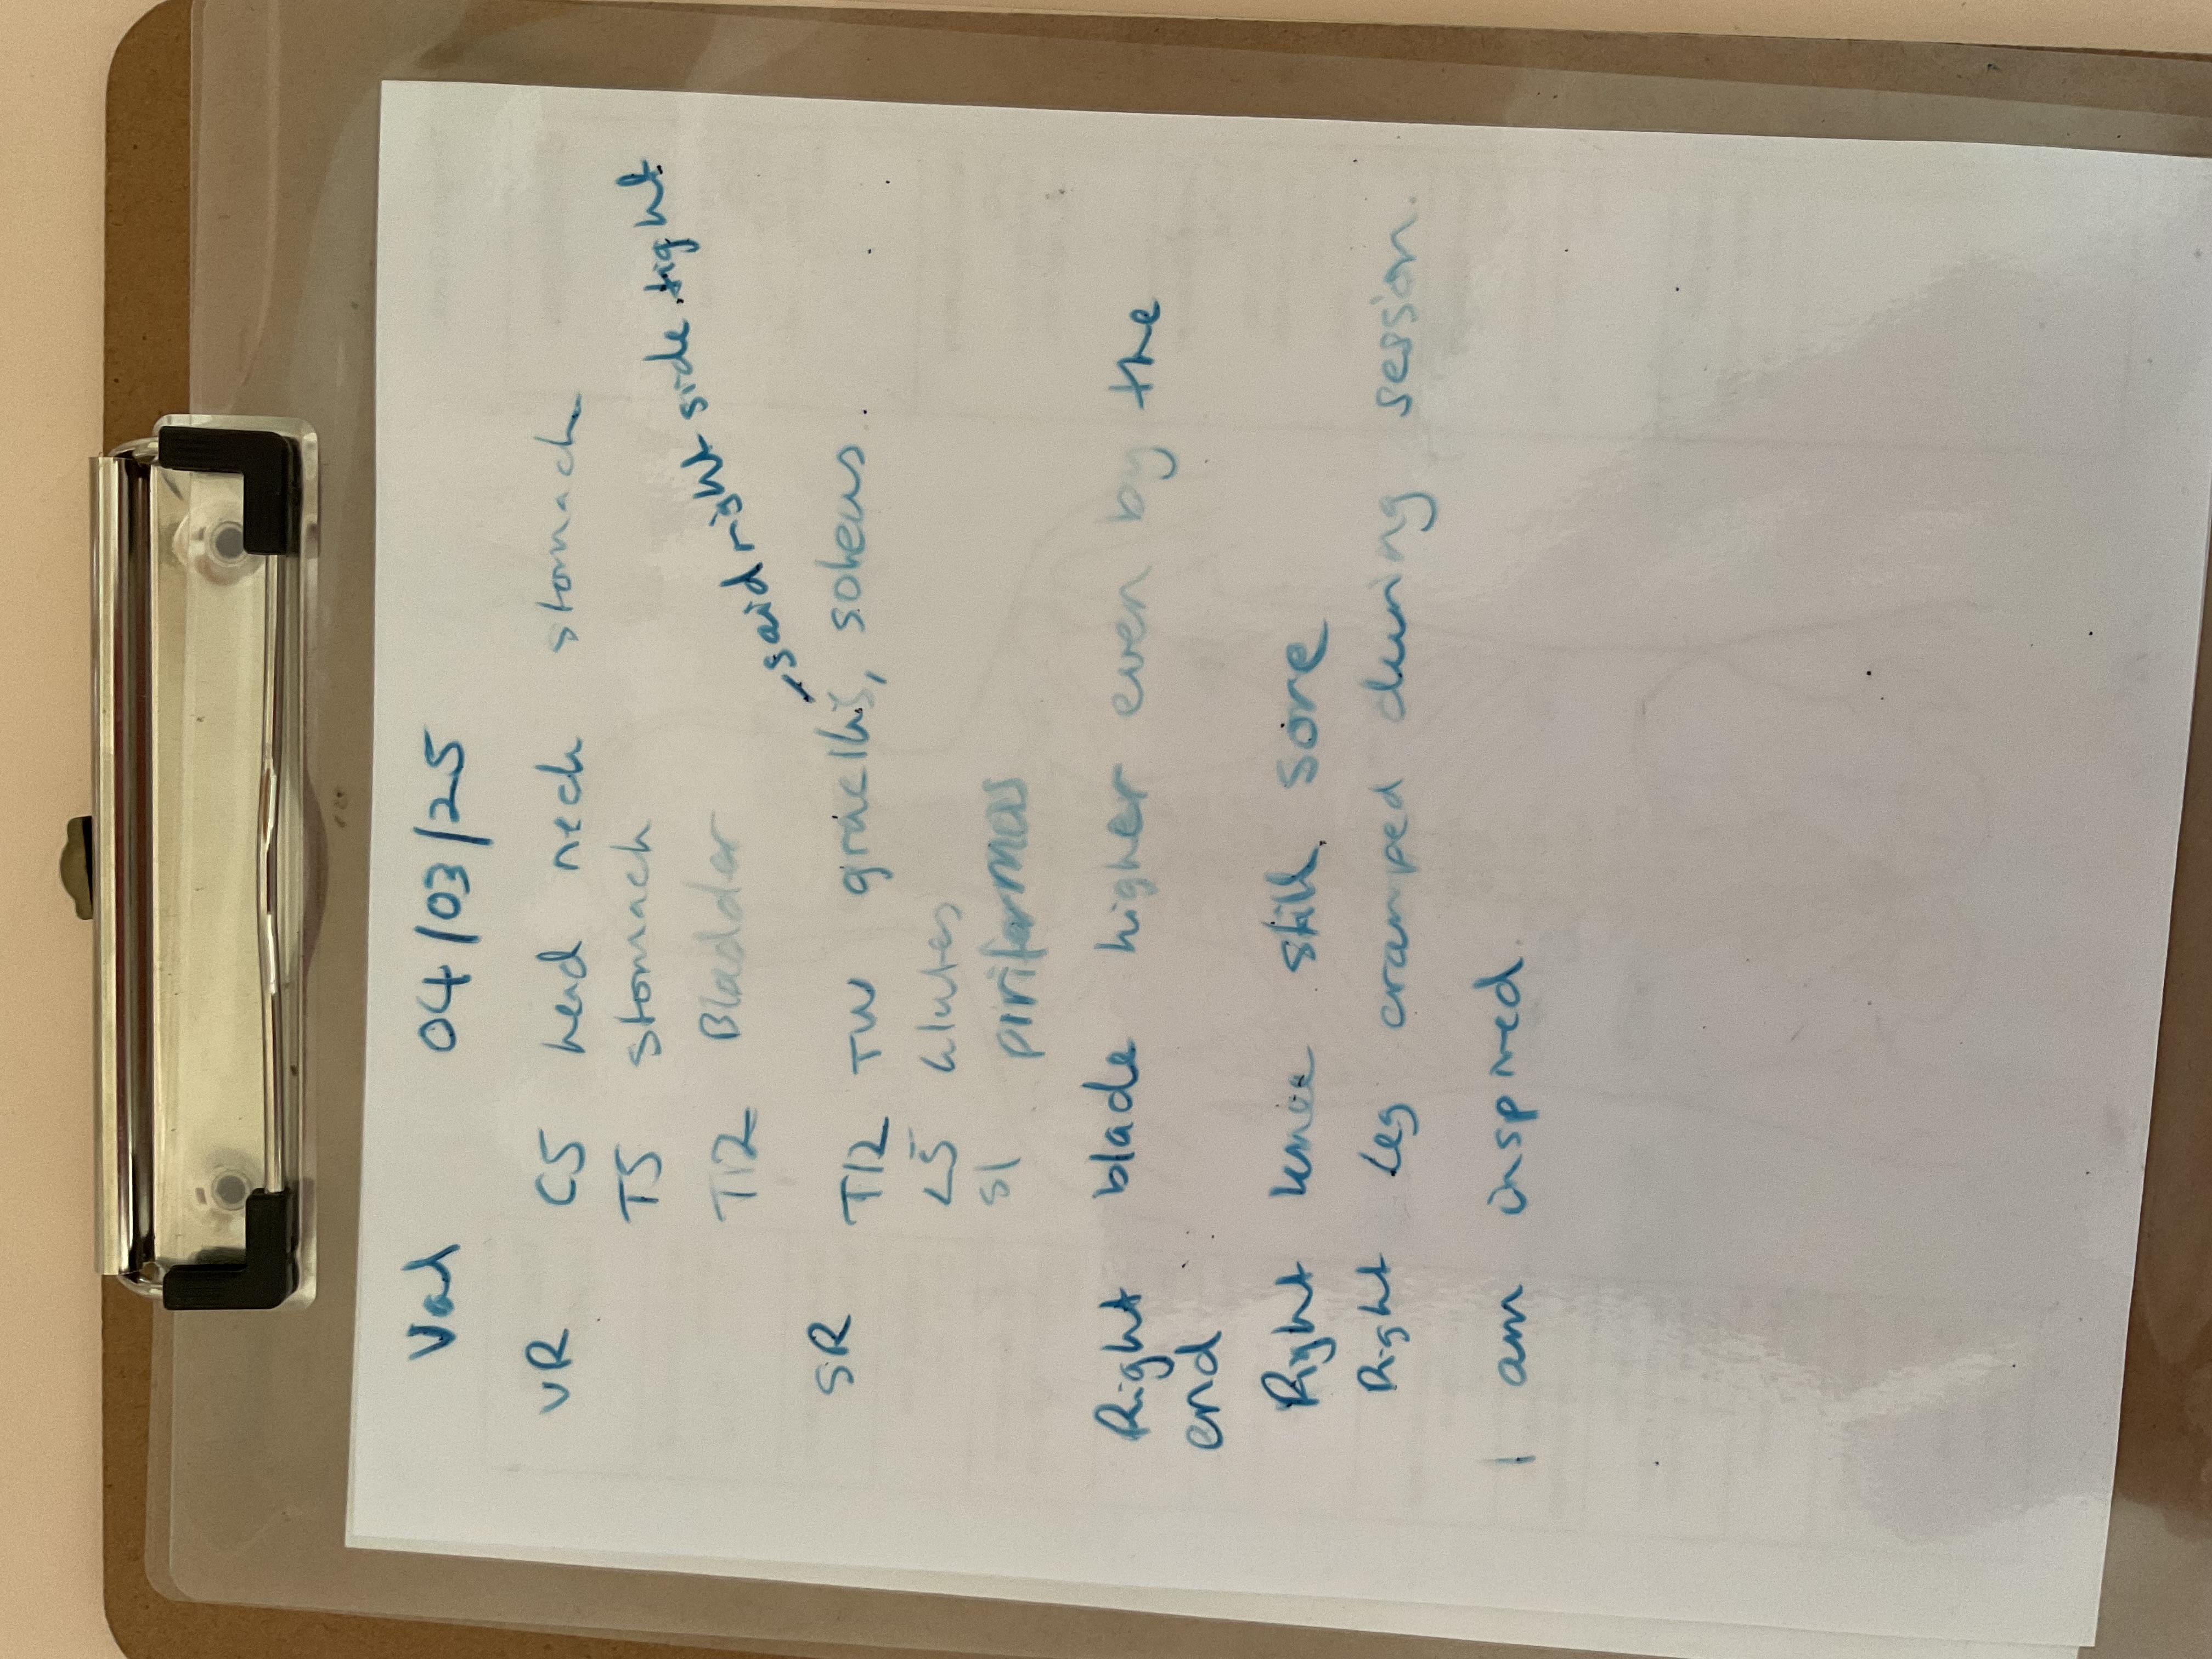 Val 04/03/25
VR C5 head neck stomach
T5 stomach
T12 Bladder
said right side tight
SR T12 TW gracllis, soleus
L5 Glutes
S1 piriformas
Right blade higher even by the
end
Right knee still sore
Right leg cramped during session.
I am inspired